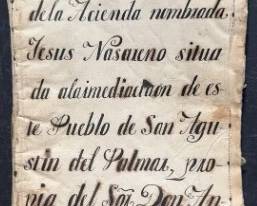 dela Acienda nombrada
Jesus Nasareno situa
da alaimediactaon de es
te Pueblo de San Agu
stin del Palmar, pro
pia del Sõr Don An